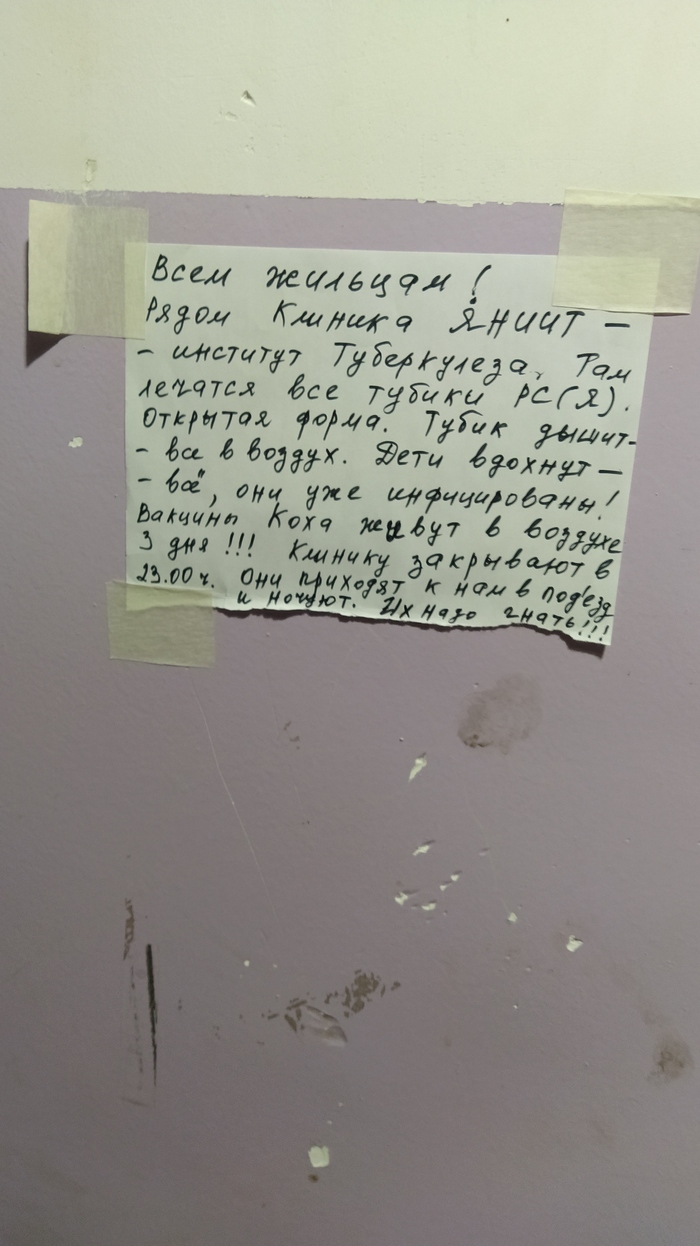 Всем жильцам!
Рядом Клиника ЯНИИТ —
- институт Туберкулеза. Там
лечатся все тубики РС(Я).
Открытая форма. Тубик дышит-
- все в воздух. Дети вдохнут —
- всё, они уже инфицированы!
Вакцины Коха живут в воздухе
3 дня!!! Клинику закрывают в
23.00 ч. Они приходят к нам в под'езд
и ночуют. Их надо гнать!!!